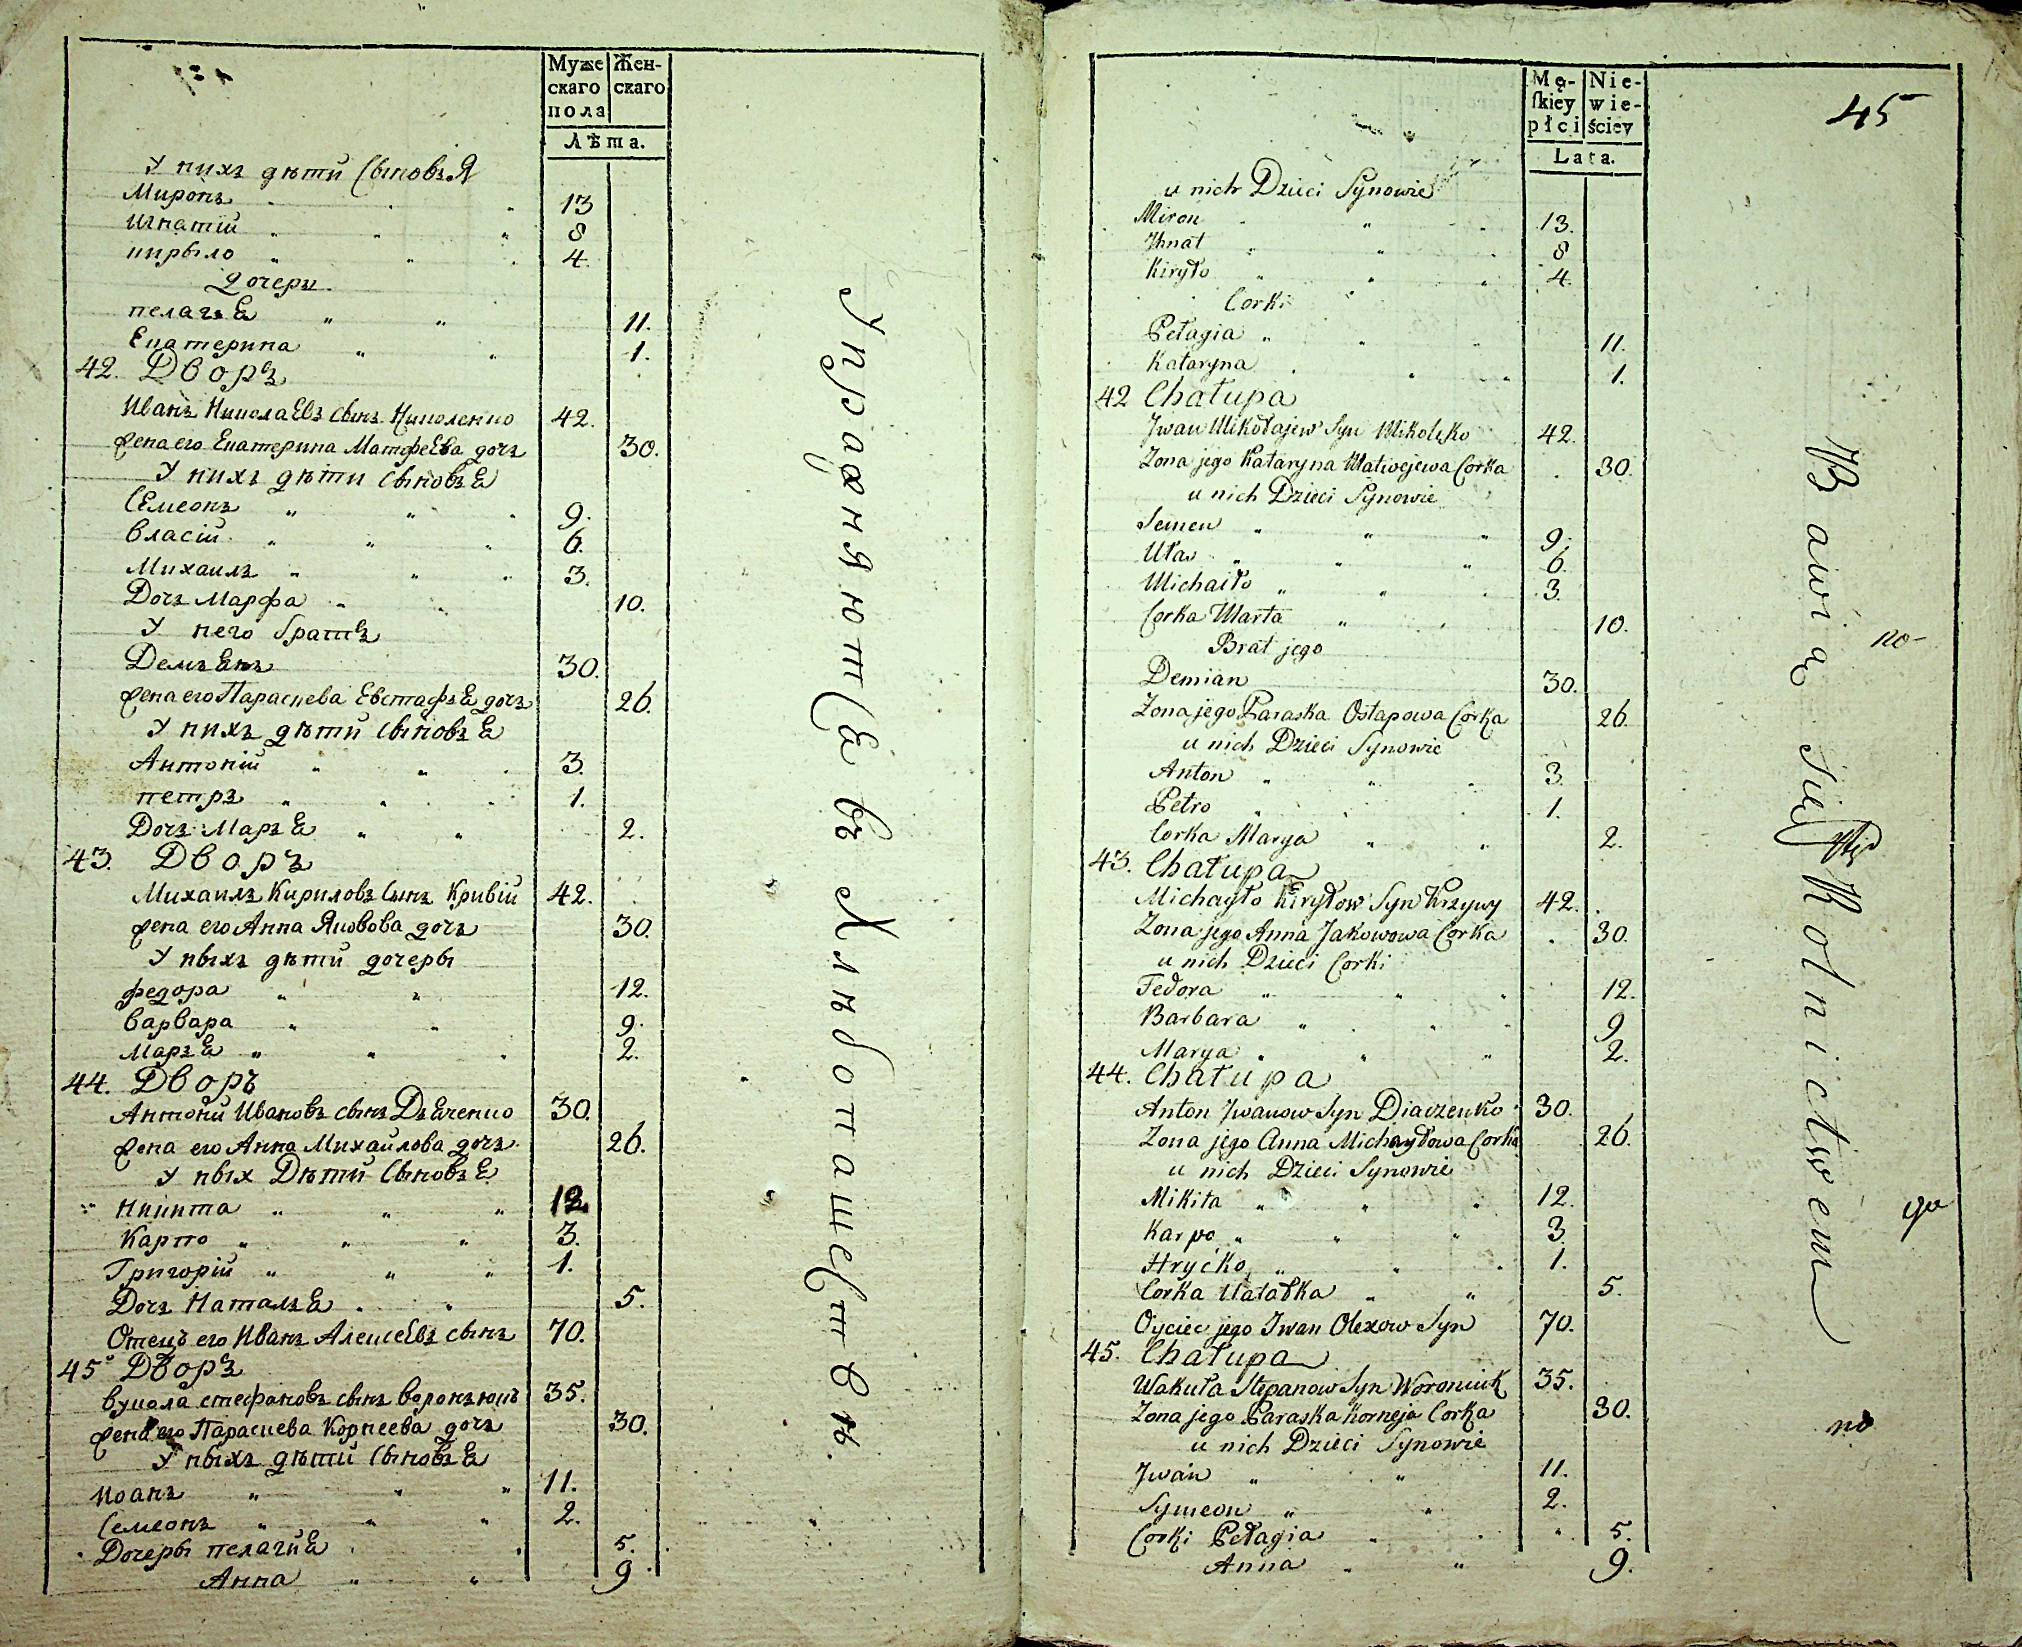 Муже
скаго
пола
Жен-
скаго
Лѣта.
У нихъ дѣти Сыновья
Миронъ 13
Игнатiй 8
Кирыло 4.
Дочери.
пелагъя 11.
Екатерина 1.
42. Дворъ
Иванъ Николаевъ сынъ Николенко 42.
жена его Екатерина Матфеева дочъ 30.
У нихъ дѣти сыновъя
Семеонъ 9.
Власiй 6.
Михаилъ 3.
Дочъ Марфа 10.
У него братъ
Демъянъ 30.
жена его Параскева Евстафъя дочъ 26.
У нихъ дѣти сыновъя
Антонiй 3.
петръ 1.
Дочъ Маръя 2.
43. Дворъ
Михаилъ Кириловъ сынъ Кривiй 42.
жена его Анна Яковова дочъ 30.
У ныхъ дѣти дочеры
федора 12.
варвара 9.
Маръя 2.
44. Дворъ
Антонiй Ивановъ сынъ Дъяченко 30.
жена его Анна Михайлова дочъ 26.
У ных Дѣти Сыновъя
Никита 12.
Карпо 3.
Григорiй 1.
Дочъ Наталъя 5.
Отецъ его Иванъ Алексеевъ сынъ 70.
45 Дворъ
вукола стефановъ сынъ воронъюкъ 35.
жена его Параскева Корнеева дочъ 30.
У ныхъ дѣти сыновъя
Иоанъ 11.
Семеонъ 2.
Дочеры пелагия 5.
Анна 9
Упражняются въ Хлѣбопашествѣ.
Mę-
ſkiey
płci
Nie-
wie-
ściey
Lata.
45
u nich Dzieci Synowie
Miron 13.
Ihnat 8
Kiryło 4.
Corki
Pełagia 11.
Kataryna 1.
42 Chałupa
Jwan Mikołajew Syn Mikolęko 42.
Zona jego Kataryna Matwejewa Corka 30.
u nich Dzieci Synowie
Semen 9.
Ułas 6.
Michaiło 3.
Corka Marta 10.
Brat jego
Demian 30.
Zona jego Paraska Ostapowa Corka 26.
u nich Dzieci Synowie
Anton 3.
Petro 1.
Corka Marya 2.
43. Chałupa
Michayło Kiryłow Syn Krzywy 42.
Zona jego Anna Jakowowa Corka 30.
u nich Dzieci Corki
Fedora 12.
Barbara 9
Marya 2.
44. Chałupa
Anton Jwanow Syn Diaczenko 30.
Zona jego Anna Michayłowa Corka 26.
u nich Dzieci Synowie
Mikita 12.
Karpo 3.
Hryćko 1.
Corka Natałka 5.
Oyciec jego Iwan Olexow Syn 70.
45. Chałupa
Wakuła Stepanow Syn Woroniuk 35.
Zona jego Paraska Korneja Corka 30.
u nich Dzieci Synowie
Jwan 11.
Symeon 2.
Corki Pełagia 5.
Anna 9.
Bawią Się Rolnictwem
по-